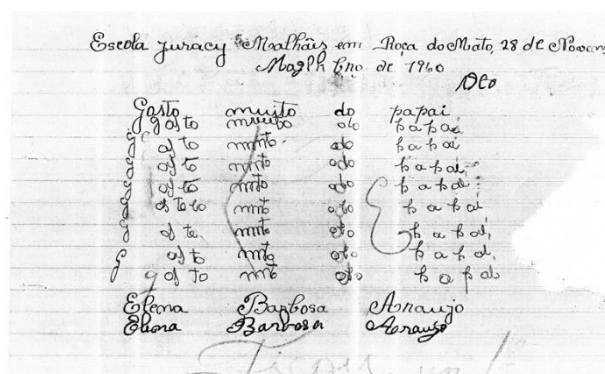 Escola Juracy Malhãis em Roça do Mato, 28 de Novem
Maglh bro de 1960
Dto
Gosto muito do papai
g gosto muito oto papai
g osto mnto. oto papai
g osto mnto oto papai,
g osto mnto oto papai
g osto to mnto oto papai
g os te. mnto oto papai,
g osto mnto oto papai,
gosto mnto oto papai
Elena Barbosa Araujo
Elena Barbosa Araujo
Ficou um